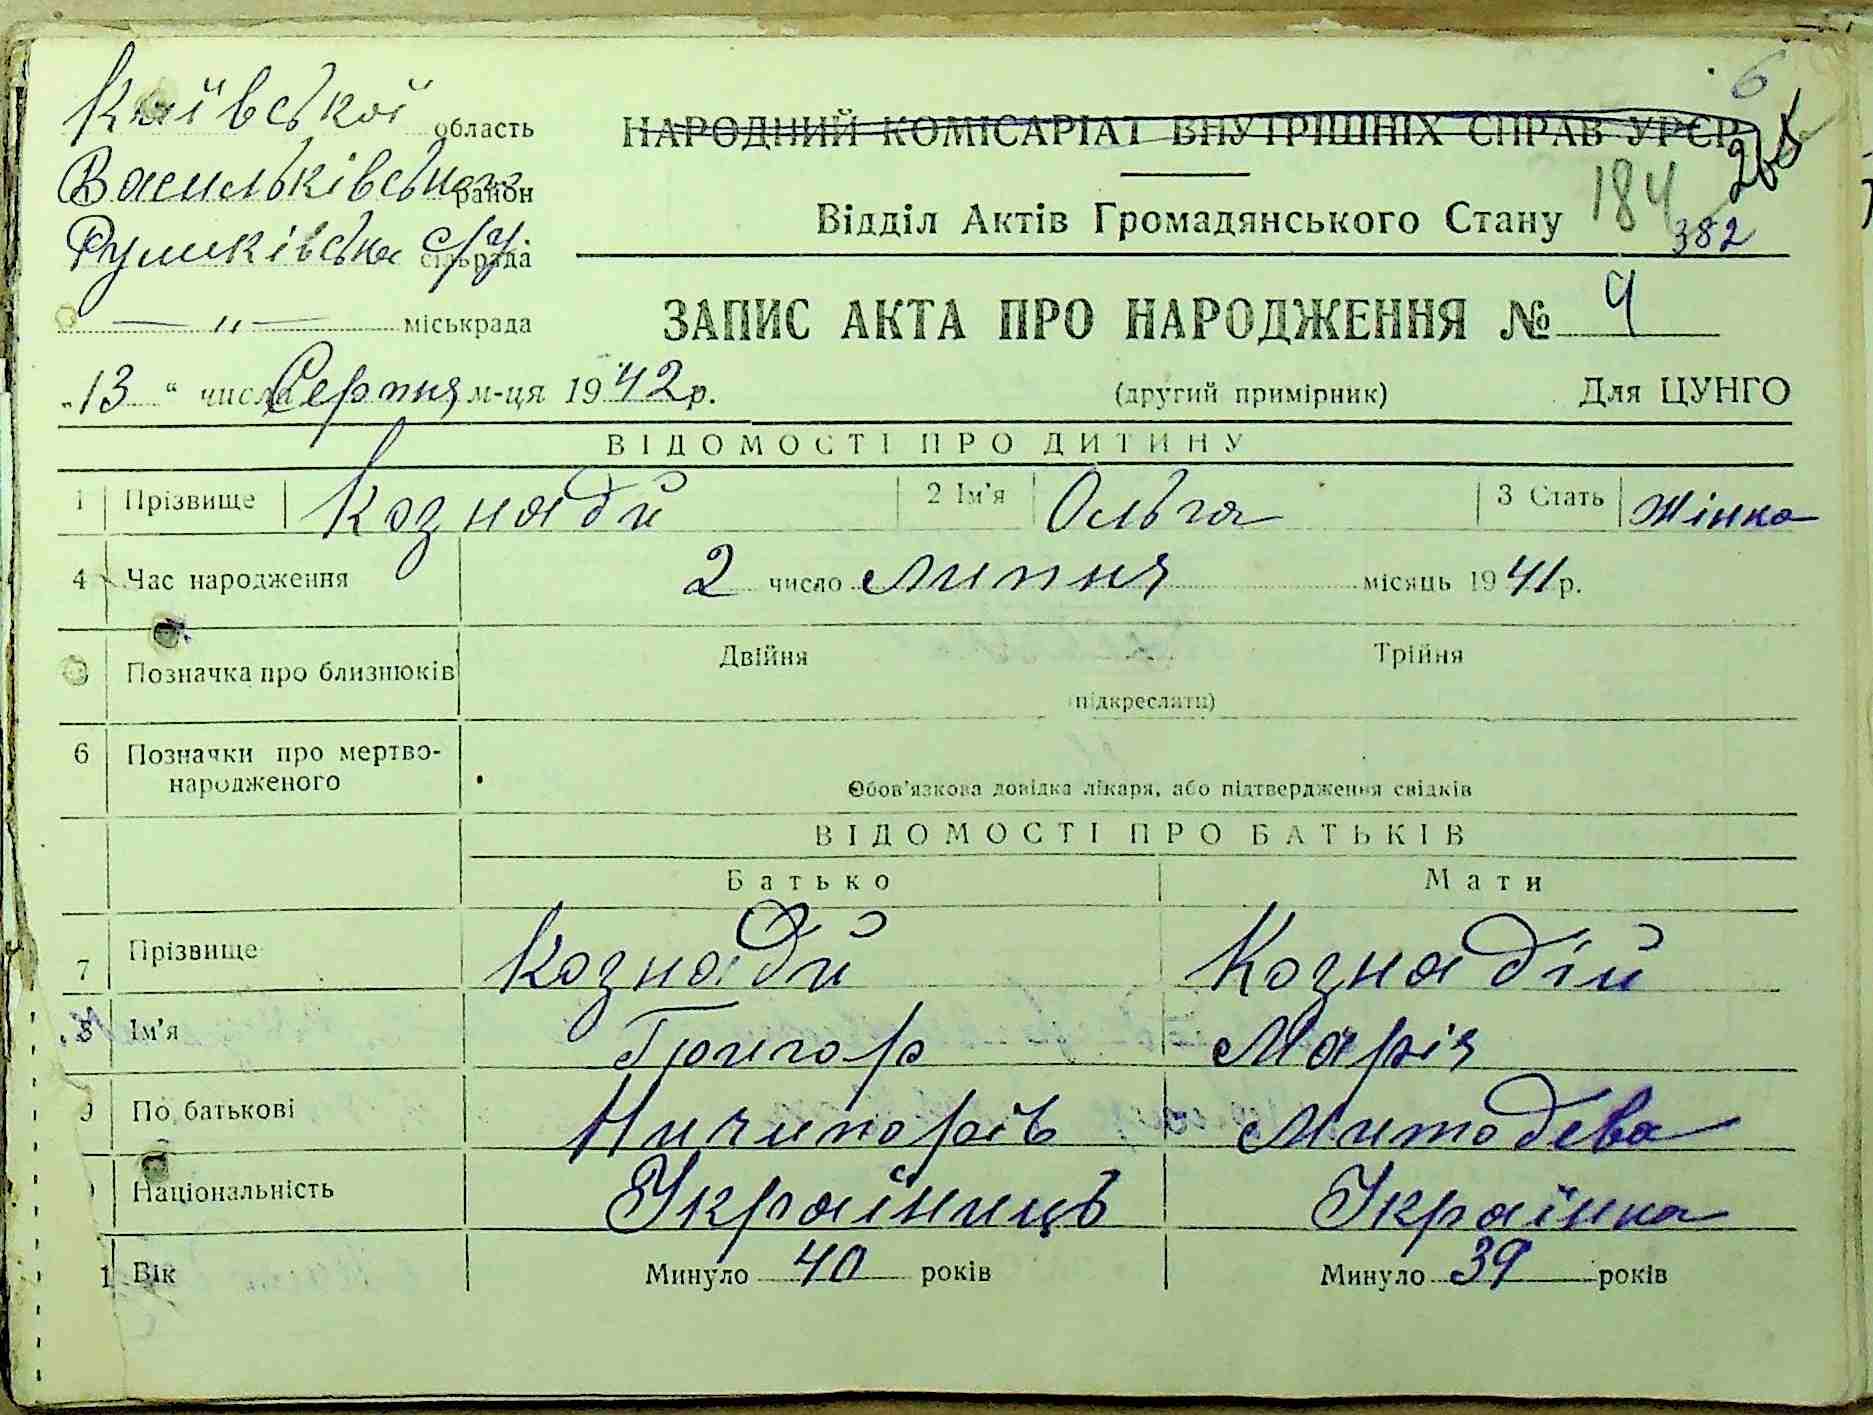 Київської область
Васильківського район
сільрада
— " — міськрада
НАРОДНИЙ КОМІСАРІАТ ВНУТРІШНІХ СПРАВ УРСР
6
Відділ Актів Громадянського Стану
184
382
ЗАПИС АКТА ПРО НАРОДЖЕННЯ № 9
„13“ числа Серпня м-ця 1942 р.
(другий примірник) Для ЦУНГО
ВІДОМОСТІ ПРО ДИТИНУ
1 Прізвище Кознадй 2 Ім'я Ольга 3 Стать Жінка
4 Час народження 2 число Липня місяць 1941 р.
Позначка про близнюків Двійня Трійня
(підкреслити)
6 Позначки про мертво-
народженого
Обов'язкова довідка лікаря, або підтвердження свідків
ВІДОМОСТІ ПРО БАТЬКІВ
Батько Мати
7 Прізвище Кознадй Кознадій
8 Ім'я Григор Марія
9 По батькові Ничипорів
Національність Українець Українка
1 Вік Минуло 40 років Минуло 39 років